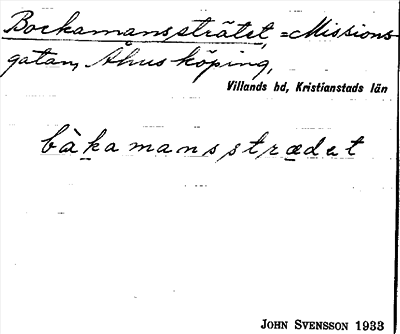 Bockamanssträtet, =Missions-
gatan, Åhus köping,
Villands hd, Kristianstads län
bàkamansstrædet
JOHN SVENSSON 1933